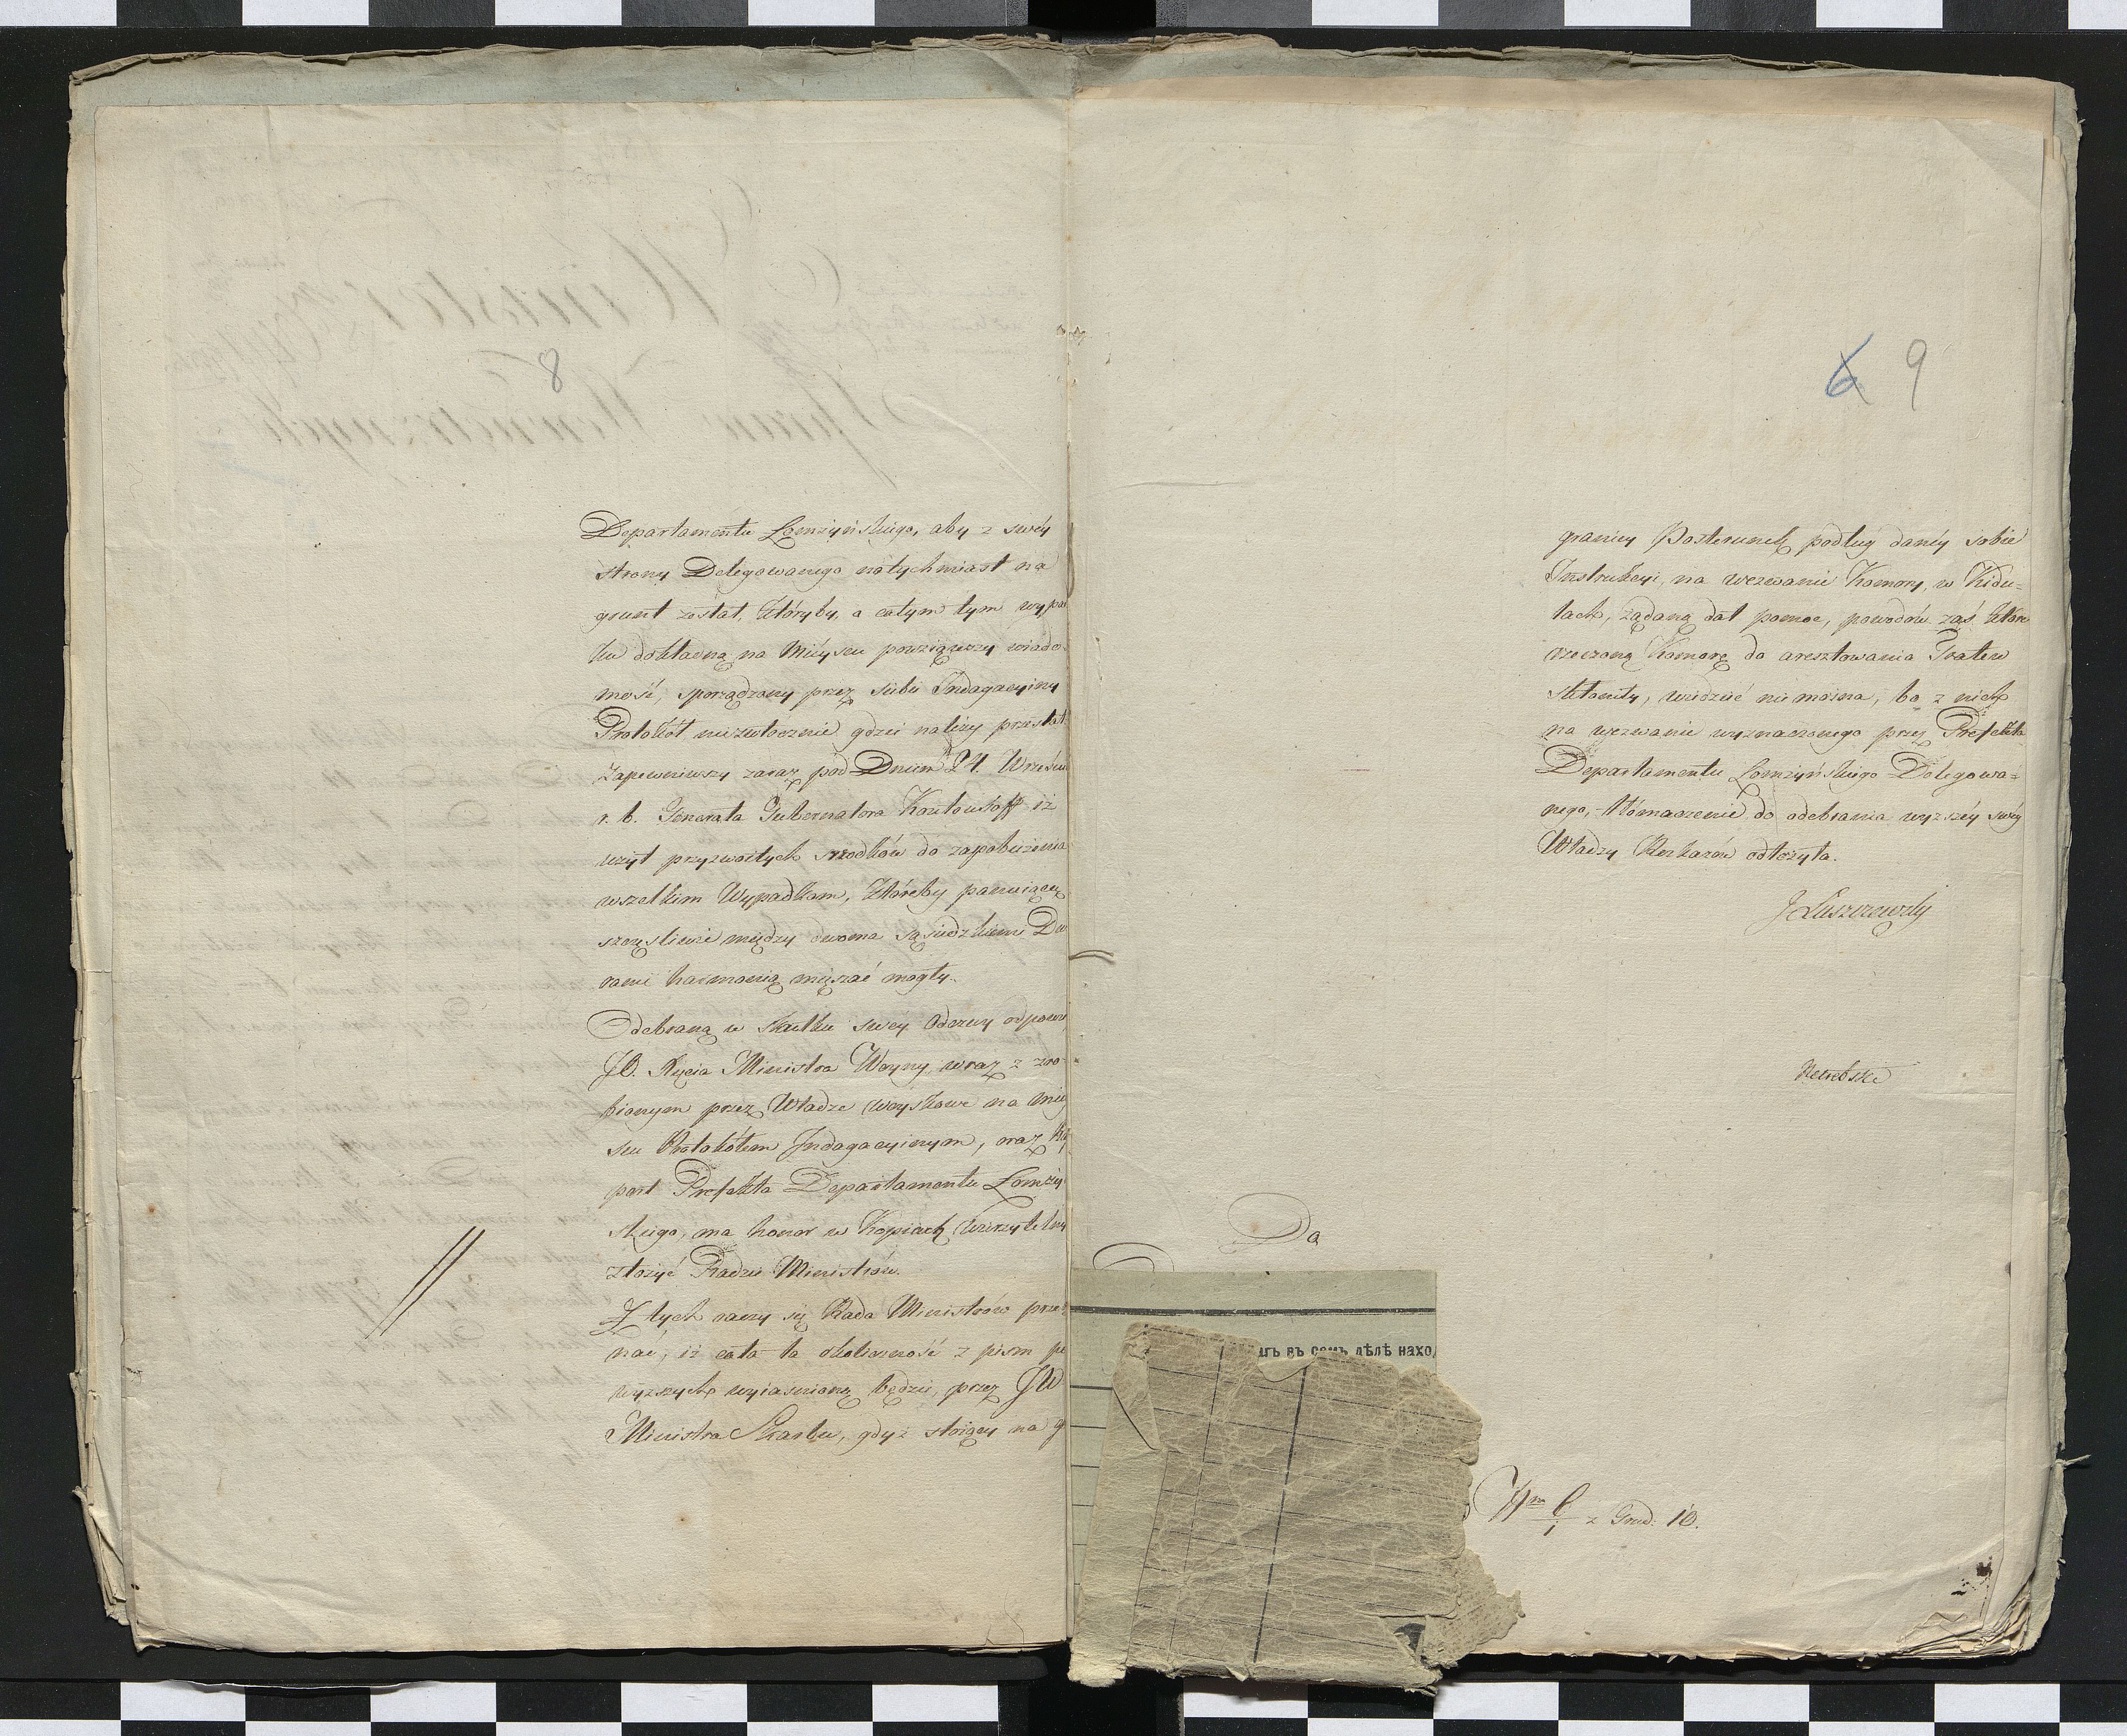 8
Departamentu Łomżyńskiego, aby z swéy
strony Delegowanego natychmiast na
grunt zesłał, któryby, o całym tym wypad
ku dokładną na Mieyscu powziąwszy wiado-
mość, sporządzony przez siebie Indagacyiny
Protokół niezwłocznie gdzie należy przesłał
Zapewniwszy zaraz pod Dniem 24. Wrześni
r. b. Generała Gubernatora Kozłowsoff iż
użył przyzwoitych srzodków do zapobieżenia
wszelkim Wypadkom, któreby panuiącą
szczęśliwie między dwoma sąsiedzkiemi Dw
rami harmonią mięszać mogły.
Odebraną w skutku swey Odezwy odpowi
JO. Xięcia Ministra Woyny, wraz z zro-
bionym przez Władze Woyskowe na miey
scu Protokółem Indagacyinym, oraz Ra
port Prefekta Departamentu Łomżyń
skiego, ma honor w Kopiach wierzytelny
złożyć Radzie Ministrów.
Z tych raczy się Rada Ministrów przeko
nać, iż cała ta okoliczność z pism po
wyższych wyiaśnioną będzie, przez JW
Ministra Skarbu, gdyż stoiący na g
6 9
granicy Posterunek podług danéy sobie
Instrukcyi, na wezwanie Komory, w Kidu-
lach, żądaną dał pomoc, powodów zaś które
rzeczoną Komorę do aresztowania Tratew
skłoniły, wiedzieć nie można, bo z nich
na wezwanie wyznaczonego przez Prefekta
Departamentu Łomżyńskiego Delegowa-
nego, tłómaczenie do odebrania wyższéy swéy
Władzy Rozkazów odłożyła.
J Łuszczewsky
Do
мъ въ семъ дѣлѣ нахо
z Grud. 10.